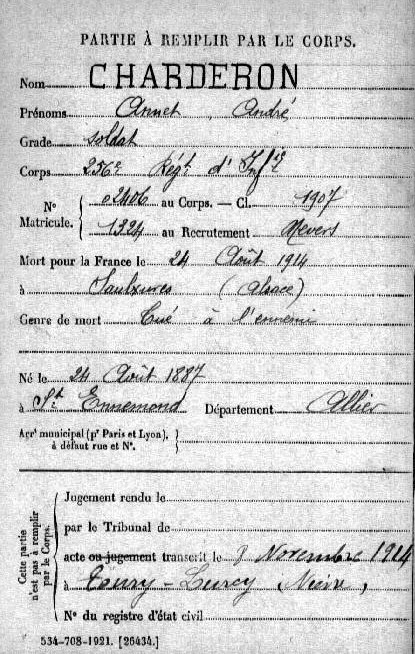 PARTIE À REMPLIR PAR LE CORPS.
Nom CHARDERON
Prénoms Annet, André
Grade soldat
Corps 256e Régt d'Infie
Nº Matricule. 02406 au Corps. — Cl. 1907
1324 au Recrutement Nevers
Mort pour la France le 24 Août 1914
à Saulxures (Alsace)
Genre de mort Tué à l'ennemi
Né le 24 Août 1887
à St Ennemond Département Allier
Arrt municipal (pr Paris et Lyon),
à défaut rue et Nº.
Cette partie n'est pas à remplir par le Corps.
Jugement rendu le
par le Tribunal de
acte ou jugement transcrit le 8 Novembre 1914
à Toury-Lurcy Nièvre,
Nº du registre d'état civil
534-708-1921. [26434.]